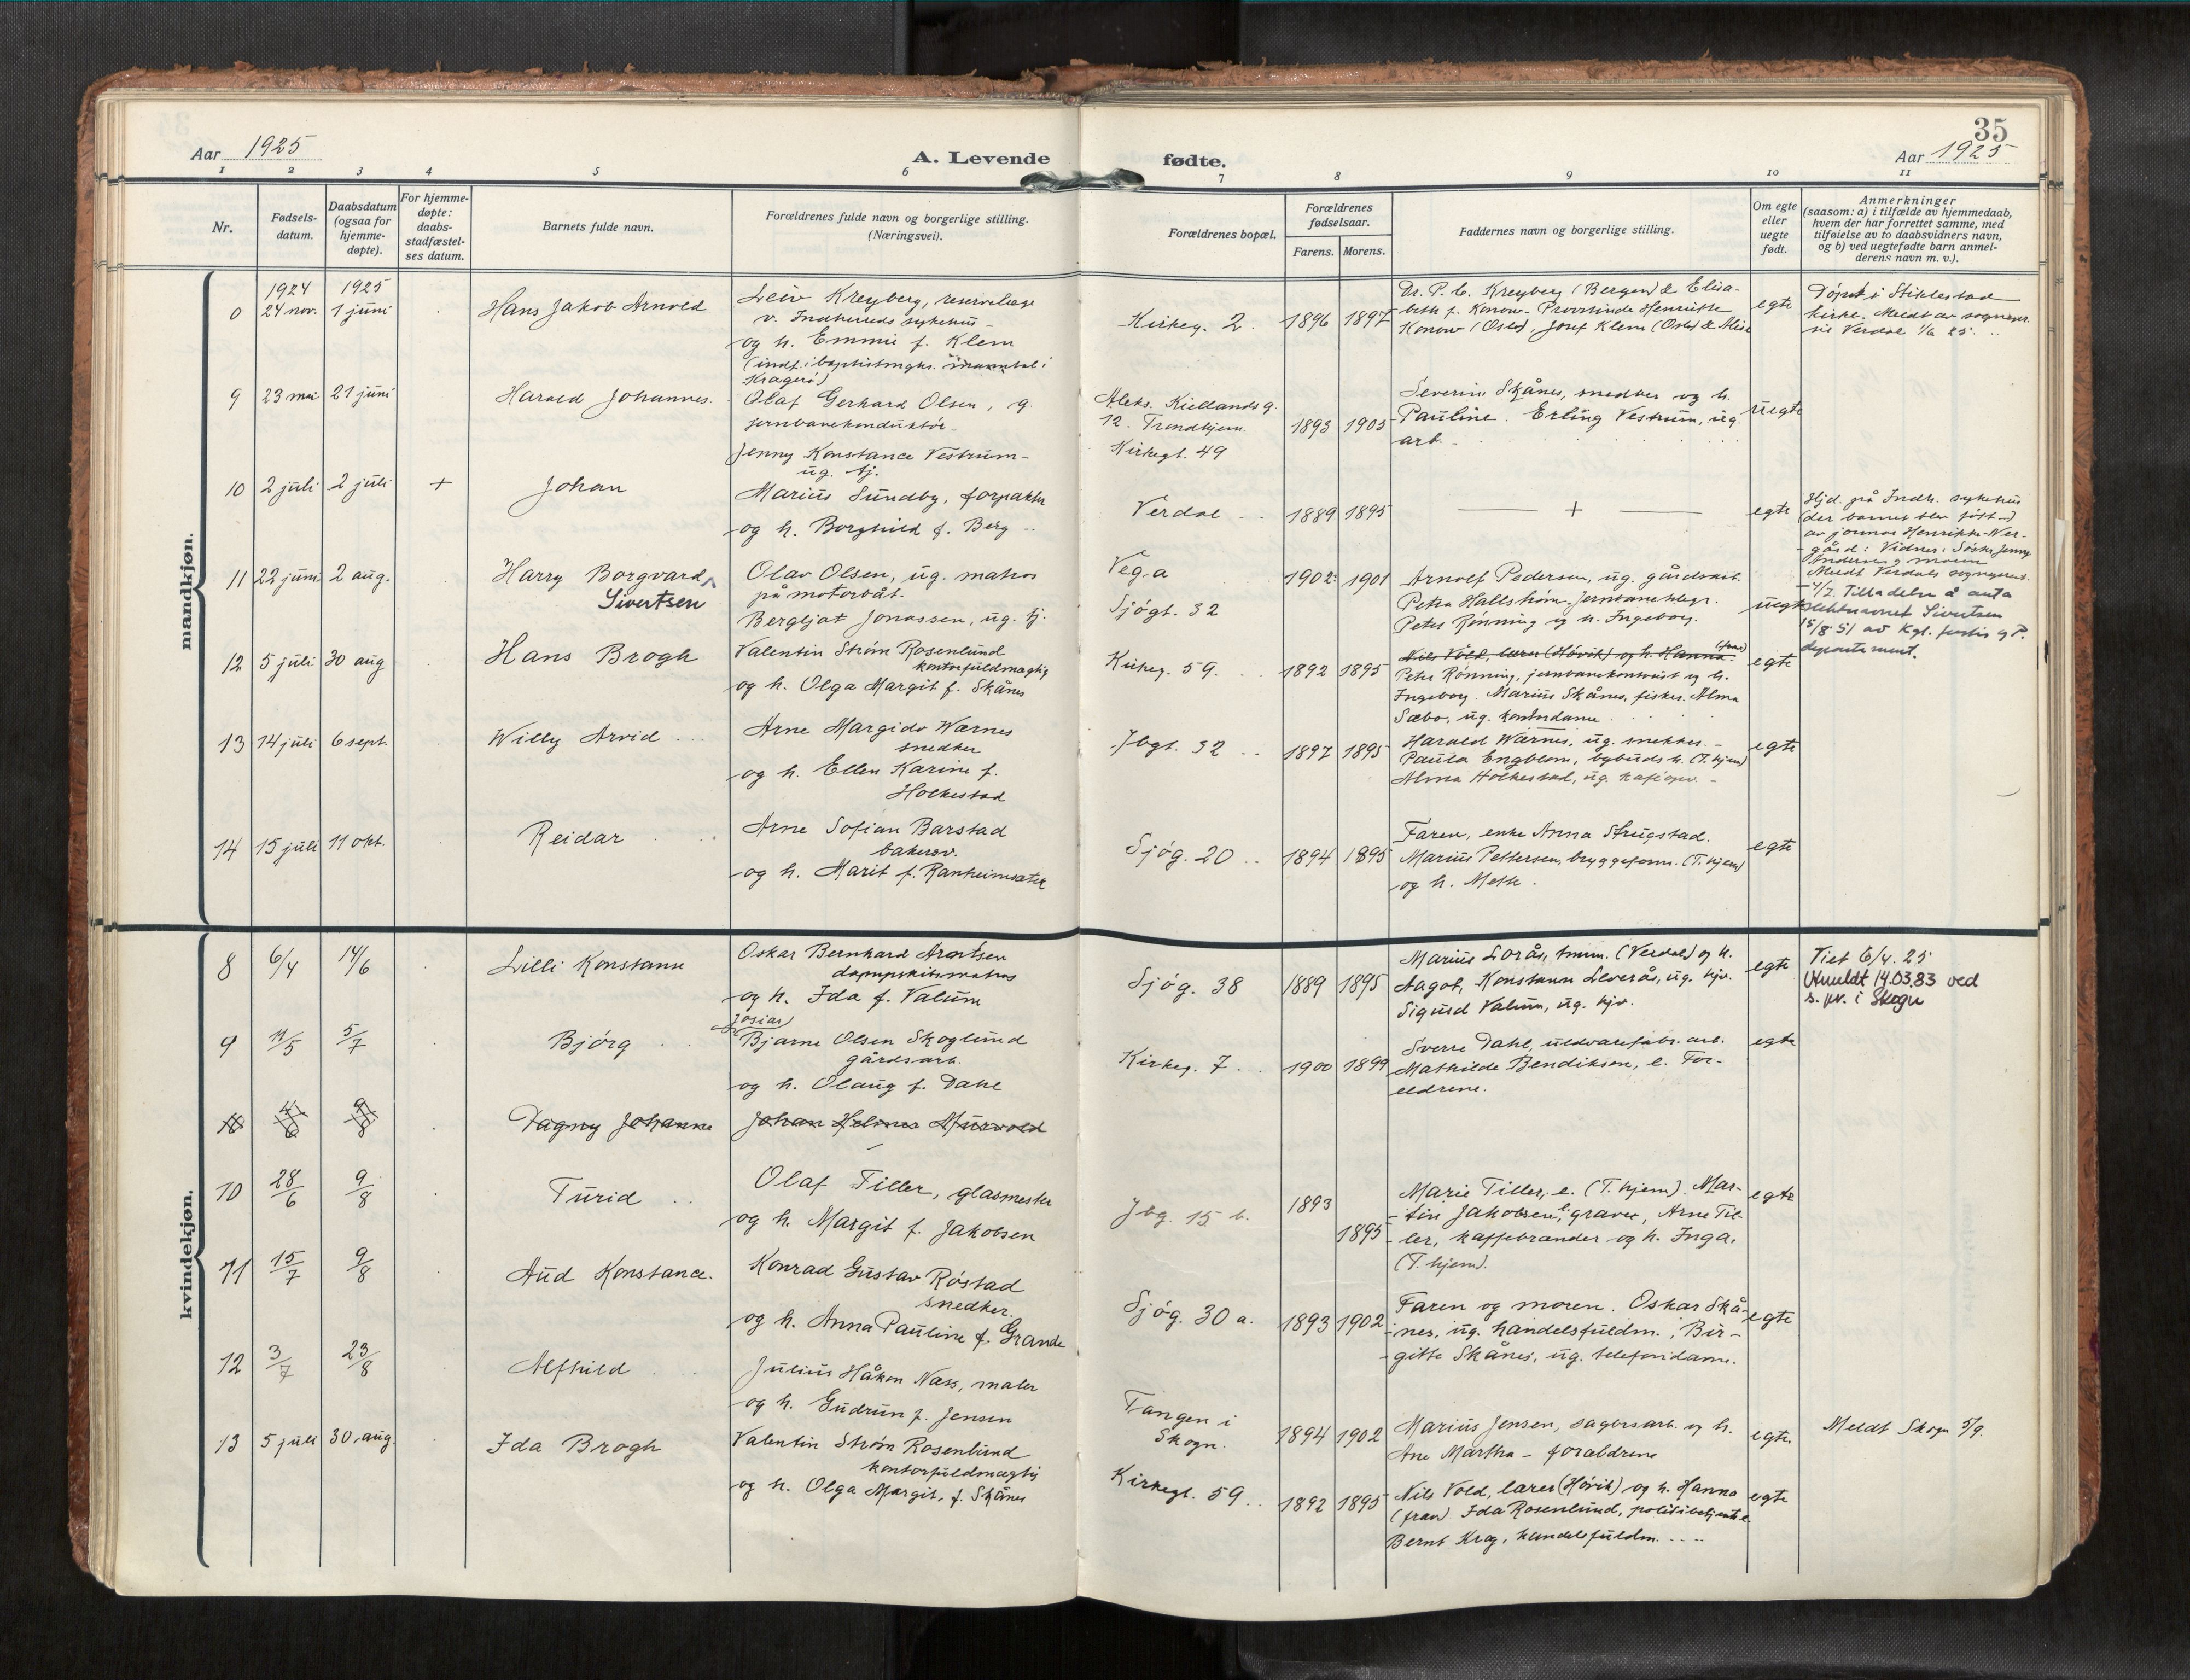 35
Aar 1925
A. Levende fødte.
Aar 1925
1 2 3 4 5 6 7 8 9 10 11
Nr.
Fødsels-
datum.
Daabsdatum
(ogsaa for
hjemme-
døpte).
For hjemme-
døpte:
daabs-
stadfæstel-
ses datum.
Barnets fulde navn.
Forældrenes fulde navn og borgerlige stilling.
(Næringsvei).
Forældrenes bopæl.
Forældrenes
fødselsaar.
Farens. Morens.
Faddernes navn og borgerlige stilling.
Om egte
eller
uegte
født.
Anmerkninger
(saasom: a) i tilfælde av hjemmedaab,
hvem der har forrettet samme, med
tilføielse av to daabsvidners navn,
og b) ved uegtefødte barn anmel-
derens navn m. v.).
mandkjøn.
1924 1925
0 24 nov. 1 juni Hans Jakob Arnold
Leiv Kreyberg, reservelæge
v. Indherreds sykehus -
og h. Emmie f. Klem
(indf. i baptistmgh. i
Kragerø)
Kirkeg. 2. 1896 1897
Dr. P. C. Kreyberg (Bergen) & Elisa-
beth f. Konow - Provstinde Henriette
Konow (Oslo), Josef Klem (Oslo) &
egte
Døpt i Stiklestad
kirke. Meldt av sognepr.
til Verdal 1/6 25.
9 23 mai 21 juni Harald Johannes.
Olaf Gerhard Olsen, g.
jernbanekonduktør -
Jenny Konstance Vestrum -
ug. tj.
Aleks. Kiellandsg.
12. Trondhjem.
Kirkegt. 49
1893 1905
Severin Skånes, snedker og h.
Pauline. Erling Vestrum, ug.
arb. -
uegte
10 2 juli 2 juli + Johan
Marius Sundby, forpakter
og h. Borghild f. Berg
Verdal 1889 1895
+
egte
Hjd. på Indh. sykehus
(der barnet blev født -)
av jormor Henrikke Ver-
gård: Vidner: Søster Jenny
Andersen og moren
Meldt Verdals sogneprest.
11 22 juni 2 aug. Harry Borgvard
Sivertsen
Olav Olsen, ug. matros
på motorbåt.
Bergljot Jonassen, ug. tj.
Vega
Sjøgt. 32
1902 1901
Arnolf Pedersen, ug. gårdsarb.
Petra Hallstrøm,
Peter Rønning og h. Ingeborg.
uegte
4/7. Tilladelse å anta
slektsnavnet Sivertsen
15/8 51 av Kgl. justis og P.
departement.
12 5 juli 30 aug Hans Brogh
Valentin Strøm Rosenlund
kontorfuldmægtig
og h. Olga Margit f. Skånes
Kirkeg. 59. 1892 1895
Nils Vold, lærer (Høvik) og h. Hanna (frav)
Peter Rønning, jernbanekontorist og h.
Ingeborg. Marius Skånes, fisker. Alma
Sæbo, ug. kontordame
egte
13 14 juli 6 sept. Willy Arvid
Arne Margido Wærnes
snedker
og h. Ellen Karine f.
Holkestad
Jbgt. 32 1897 1895
Harald Wærnes, ug. snekker. -
Paula Engblom, bybuds h. (T. hjem)
Alma Holkestad, ug. kafiopv. -
egte
14 15 juli 11 okt. Reidar
Arne Sofian Barstad
bakersv.
og h. Marit f. Ranheimsæter
Sjøg. 20 1894 1895
Faren, enke Anna Strugstad.
Marius Pettersen, bryggeform. (T. hjem)
og h. Meth.
egte
kvindekjøn.
8 6/4 14/6 Lilli Konstanse
Oskar Bernhard Arntsen
dampskibsmatros
og h. Ida f. Valum
Sjøg. 38 1889 1895
Marius Lorås, tmm. (Verdal) og h.
Aagot, Konstanse Leverås, ug. hjv.
Sigurd Valum, ug. hjv.
egte
Viet 6/4. 25
Utmeldt 14.03.83 ved
s. pr. i Skogn
9 11/5 5/7 Bjørg
Josias
Bjarne Olsen Skoglund
gårdsarb.
og h. Olaug f. Dahl
Kirkeg. 7 1900 1899
Sverre Dahl, uldvarefabr. arb.
Mathilde Bendiksen, e. For-
eldrene.
egte
10 4/6 9/8 Dagny Johanne Johan Helmer Murvold
10 28/6 9/8 Turid
Olaf Tiller, glasmester
og h. Margit f. Jakobsen
Jbg. 15 b. 1893
1895
Marie Tiller, e. (T. hjem). Mar-
tin Jakobsen, graver, Arne Til-
ler, kaffebrænder og h. Inga.
(T. hjem).
egte
11 15/7 9/8 Aud Konstance.
Konrad Gustav Røstad
snedker.
og h. Anna Pauline f. Grande
Sjøg. 30 a. 1893 1902
Faren og moren. Oskar Skå-
nes, ug. handelsfuldm., Bir-
gitte Skånes, ug. telefondame.
egte
12 3/7 23/8 Alfhild
Julius Håkon Næss, maler
og h. Gudrun f. Jensen
Tangen i
Skogn.
1894 1902
Marius Jensen, sagbrsarb. og h.
Ane Martha - forældrene
egte
Meldt Skogn 5/9.
13 5 juli 30. aug. Ida Brogh
Valentin Strøm Rosenlund
kontorfuldmægtig
og h. Olga Margit, f. Skånes
Kirkegt. 59 1892 1895
Nils Vold, lærer (Høvik) og h. Hanna
(frav) Ida Rosenlund, politibetjents e.
Bernt Krog, handelsfuldm.
egte